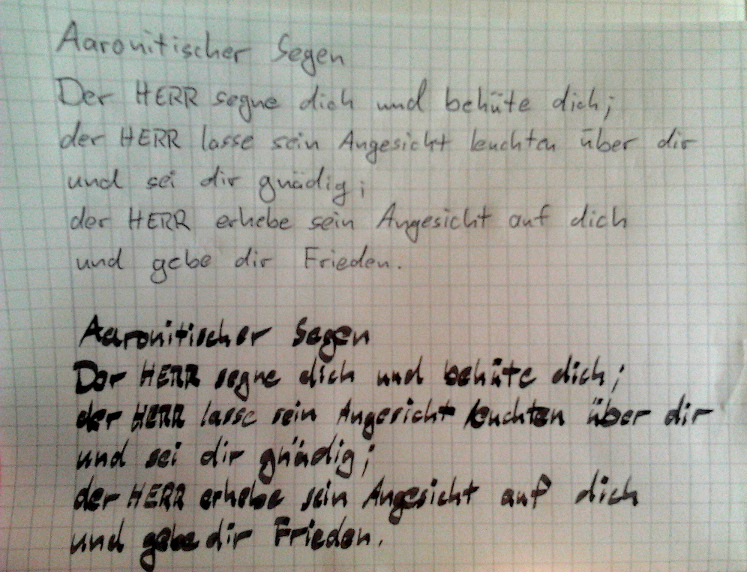 Aaronitischer Segen
Der HERR segne dich und behüte dich;
der HERR lasse sein Angesicht leuchten über dir
und sei dir gnädig;
der HERR erhebe sein Angesicht auf dich
und gebe dir Frieden.
Aaronitischer Segen
Der HERR segne dich und behüte dich;
der HERR lasse sein Angesicht leuchten über dir
und sei dir gnädig;
der HERR erhebe sein Angesicht auf dich
und gebe dir Frieden.